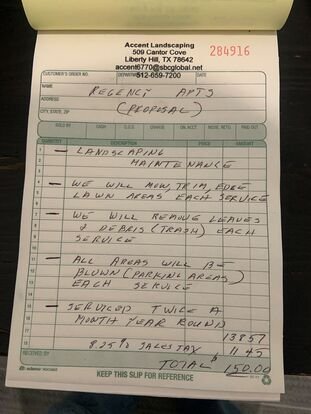 Accent Landscaping
509 Cantor Cove
Liberty Hill, TX 78642
accent6770@sbcglobal.net
512-659-7200
284916
CUSTOMER'S ORDER NO. DEPARTMENT DATE
NAME REGENCY APTS
ADDRESS (PROPOSAL)
CITY, STATE, ZIP
SOLD BY CASH C.O.D. CHARGE ON. ACCT. MDSE. RETD. PAID OUT
QUANTITY DESCRIPTION PRICE AMOUNT
1 — LANDSCAPING
2 MAINTENANCE
4 — WE WILL MOW, TRIM, EDGE
5 LAWN AREAS EACH SERVICE
7 — WE WILL REMOVE LEAVES
8 & DEBRIS (TRASH) EACH
9 SERVICE
11 — ALL AREAS WILL BE
12 BLOWN (PARKING AREAS)
13 EACH SERVICE
15 — SERVICED TWICE A
16 MONTH YEAR ROUND
17 138 57
18 8.25% SALES TAX 11 43
RECEIVED BY TOTAL $ 150.00
adams
KEEP THIS SLIP FOR REFERENCE